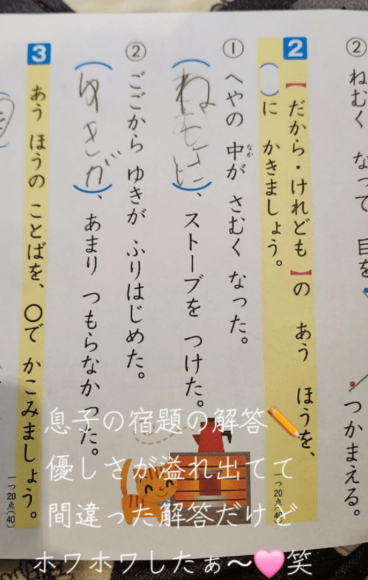 ② ねむく なって 目を
つかまえる。
2 【だから・けれども】の あう ほうを、
（ ）に かきましょう。
一つ20点(40)
① へやの 中が さむく なった。
なか
（ ）、ストーブを つけた。
② ごごから ゆきが ふりはじめた。
（ゆきが）、あまり つもらなかった。
3 あう ほうの ことばを、○で かこみましょう。
一つ20点(40)
息子の宿題の解答✏️
優しさが溢れ出てて
間違った解答だけど
ホワホワしたぁ〜💗笑